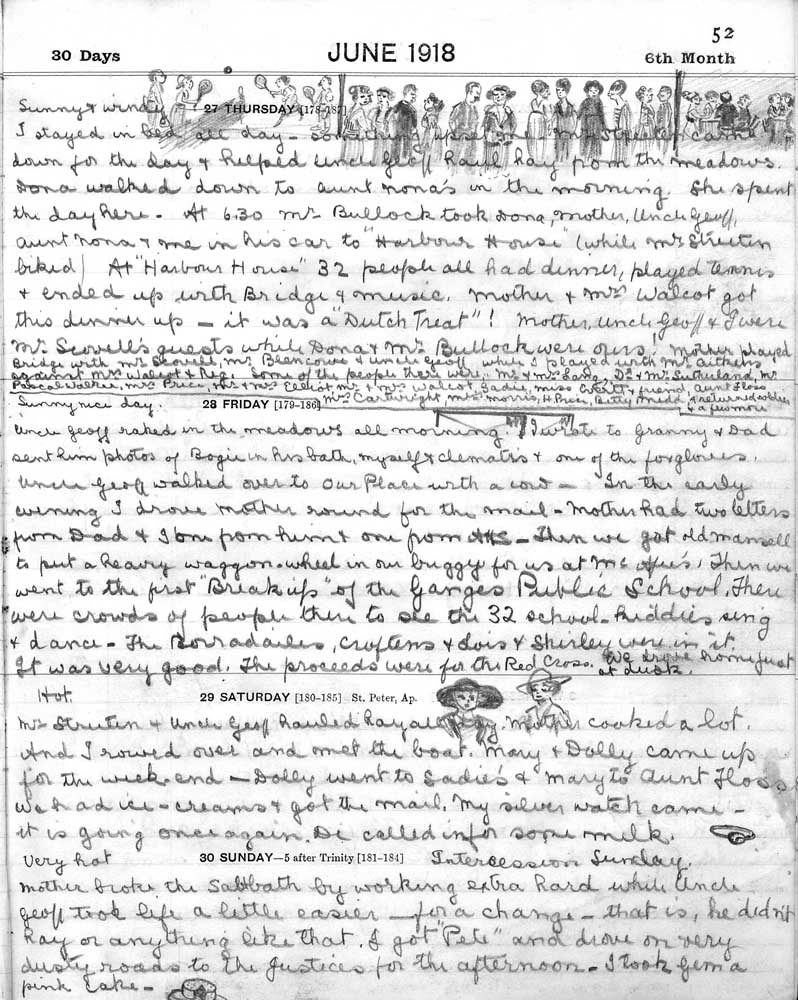 52
30 Days JUNE 1918 6th Month
Sunny & windy 27 THURSDAY [178-187]
I stayed in bed all day – something upset me. Mr Streeten came
down for the day & helped Uncle Geoff haul hay from the meadows.
Dona walked down to Aunt Nona's in the morning. She spent
the day here – At 6.30 Mr Bullock took Dona, Mother, Uncle Geoff,
Aunt Nona & me in his car to "Harbour House" (while Mr Streeten
biked) At "Harbour House" 32 people all had dinner, played tennis
& ended up with Bridge & music. Mother & Mrs Walcot got
this dinner up – it was a "Dutch Treat"! Mother, Uncle Geoff & I were
Mr Scovell's guests while Dona & Mr Bullock were ours! Mother played
Bridge with Mr Scovell, Mr Blencowe & Uncle Geoff while I played with Mr Aitkens
against Mrs Walcot & Reg. Some of the people there were, Mr & Mrs Lang, Dr & Mrs Sutherland, Mr
Pascal Walker, Mrs Price, Mr & Mrs Elliot, Mr & Mrs Walcot, Sadie, Miss & friend, Aunt Floss
Mrs Cartwright, Mrs Morris, H. Price, Betty Midd, 4 returned soldies
& a few more
Sunny nice day. 28 FRIDAY [179-186]
Uncle Geoff raked in the meadows all morning. I wrote to Granny & Dad
sent him photos of Bogie in his bath, myself & clematis & one of the foxgloves.
Uncle Geoff walked over to Our Place with a cow – In the early
evening I drove Mother round for the mail – Mother had two letters
from Dad & I one from him & one from – Then we got old Mansell
to put a heavy waggon-wheel in our buggy for us at Mc Afee's. Then we
went to the first "Break up" of the Ganges Public School. There
were crowds of people there to see the 32 school-kiddies sing
& dance – The Borradailes, Croftens & Lois & Shirley were in it.
It was very good. The proceeds were for the Red Cross. We drove home just
at dusk.
Hot. 29 SATURDAY [180-185] St. Peter, Ap.
Mr Streeten & Uncle Geoff hauled hay all day. Mother cooked a lot.
And I rowed over and met the boat. Mary & Dolly came up
for the week-end – Dolly went to Sadie's & Mary to Aunt Floss
We had ice-creams & got the mail. My silver watch came –
it is going once again. De called in for some milk.
Very hot 30 SUNDAY—5 after Trinity [181-184] Intercession Sunday.
Mother broke the Sabbath by working extra hard while Uncle
Geoff took life a little easier – for a change – that is, he didn't
hay or anything like that. I got "Pete" and drove on very
dusty roads to the Justices for the afternoon – I took Gem a
pink cake –